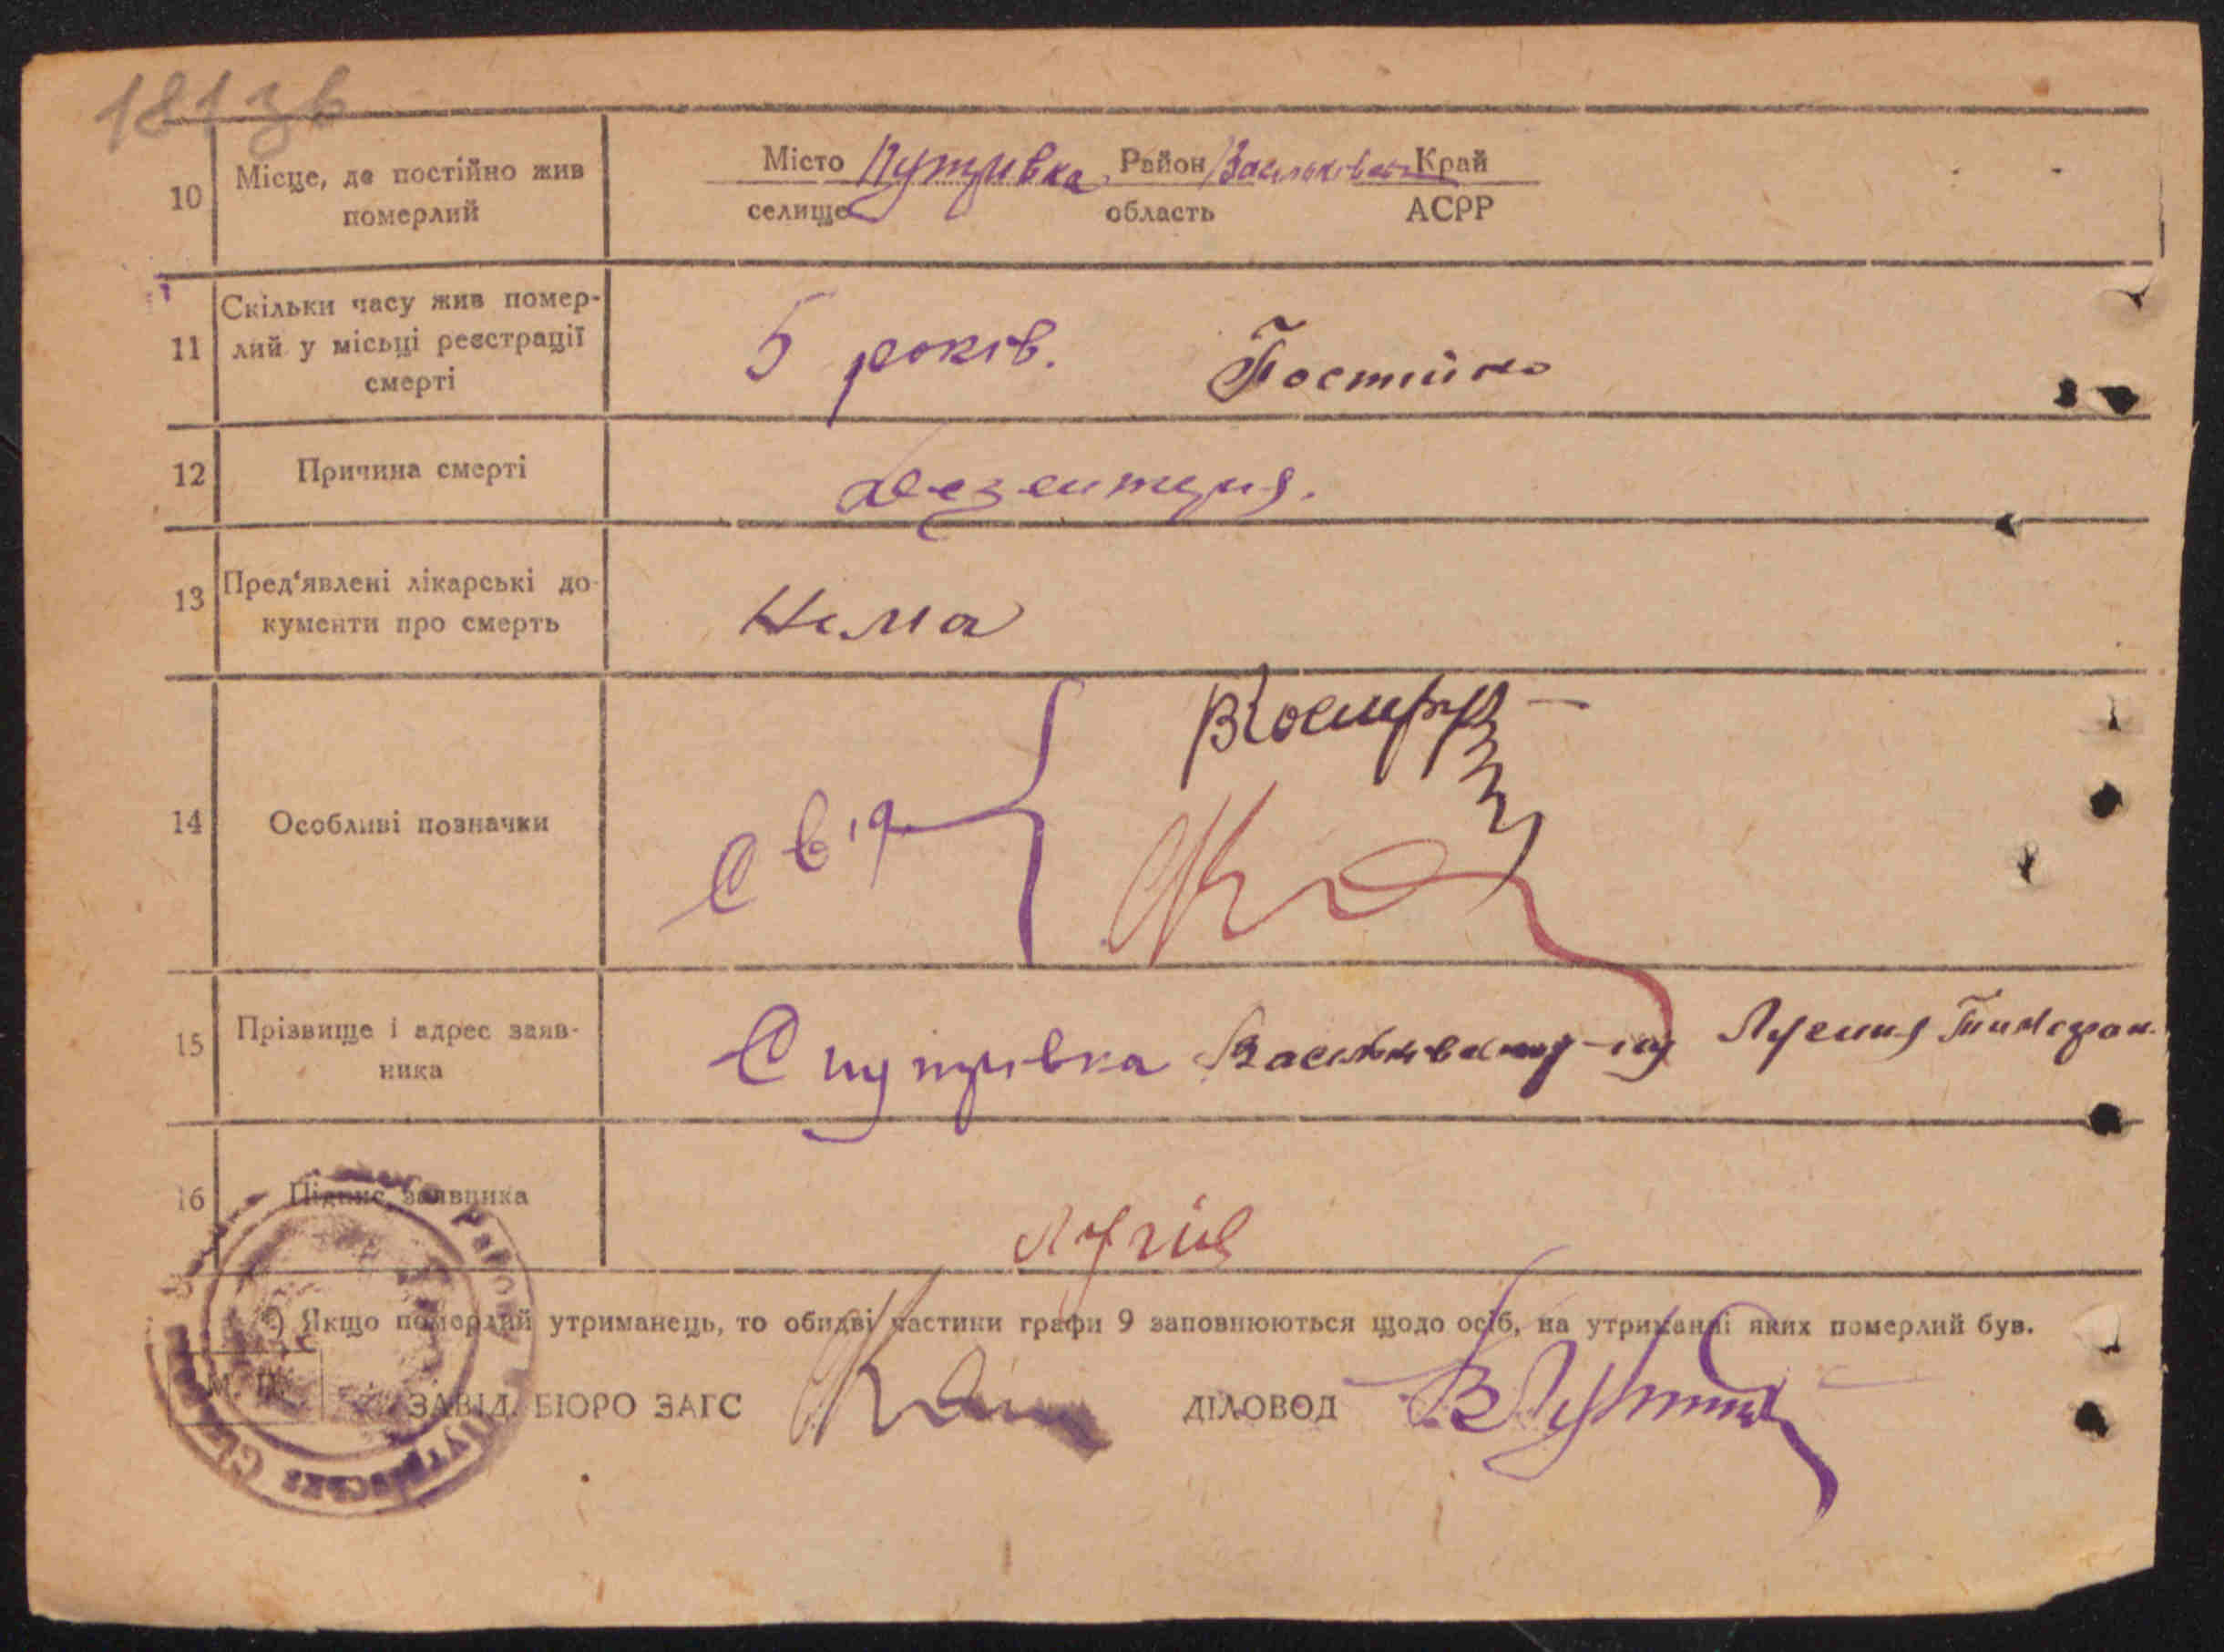 181зв
10 Місце, де постійно жив померлий
Місто Путрівка Район Васильківськ Край
селище область АСРР
11 Скільки часу жив помер-
лий у місьці реєстрації
смерті
5 років. Постійно
12 Причина смерті
Дезентерия.
13 Пред'явлені лікарські до-
кументи про смерть
Нема
14 Особливі позначки
Свід
15 Прізвище і адрес заяв-
ника
С Путрівка Васильківському
16 Підпис заявника
*) Якщо померлий утриманець, то обидві частини графи 9 заповнюються щодо осіб, на утриманні яких померлий був.
М. П.
ЗАВІД. БЮРО ЗАГС
ДІЛОВОД